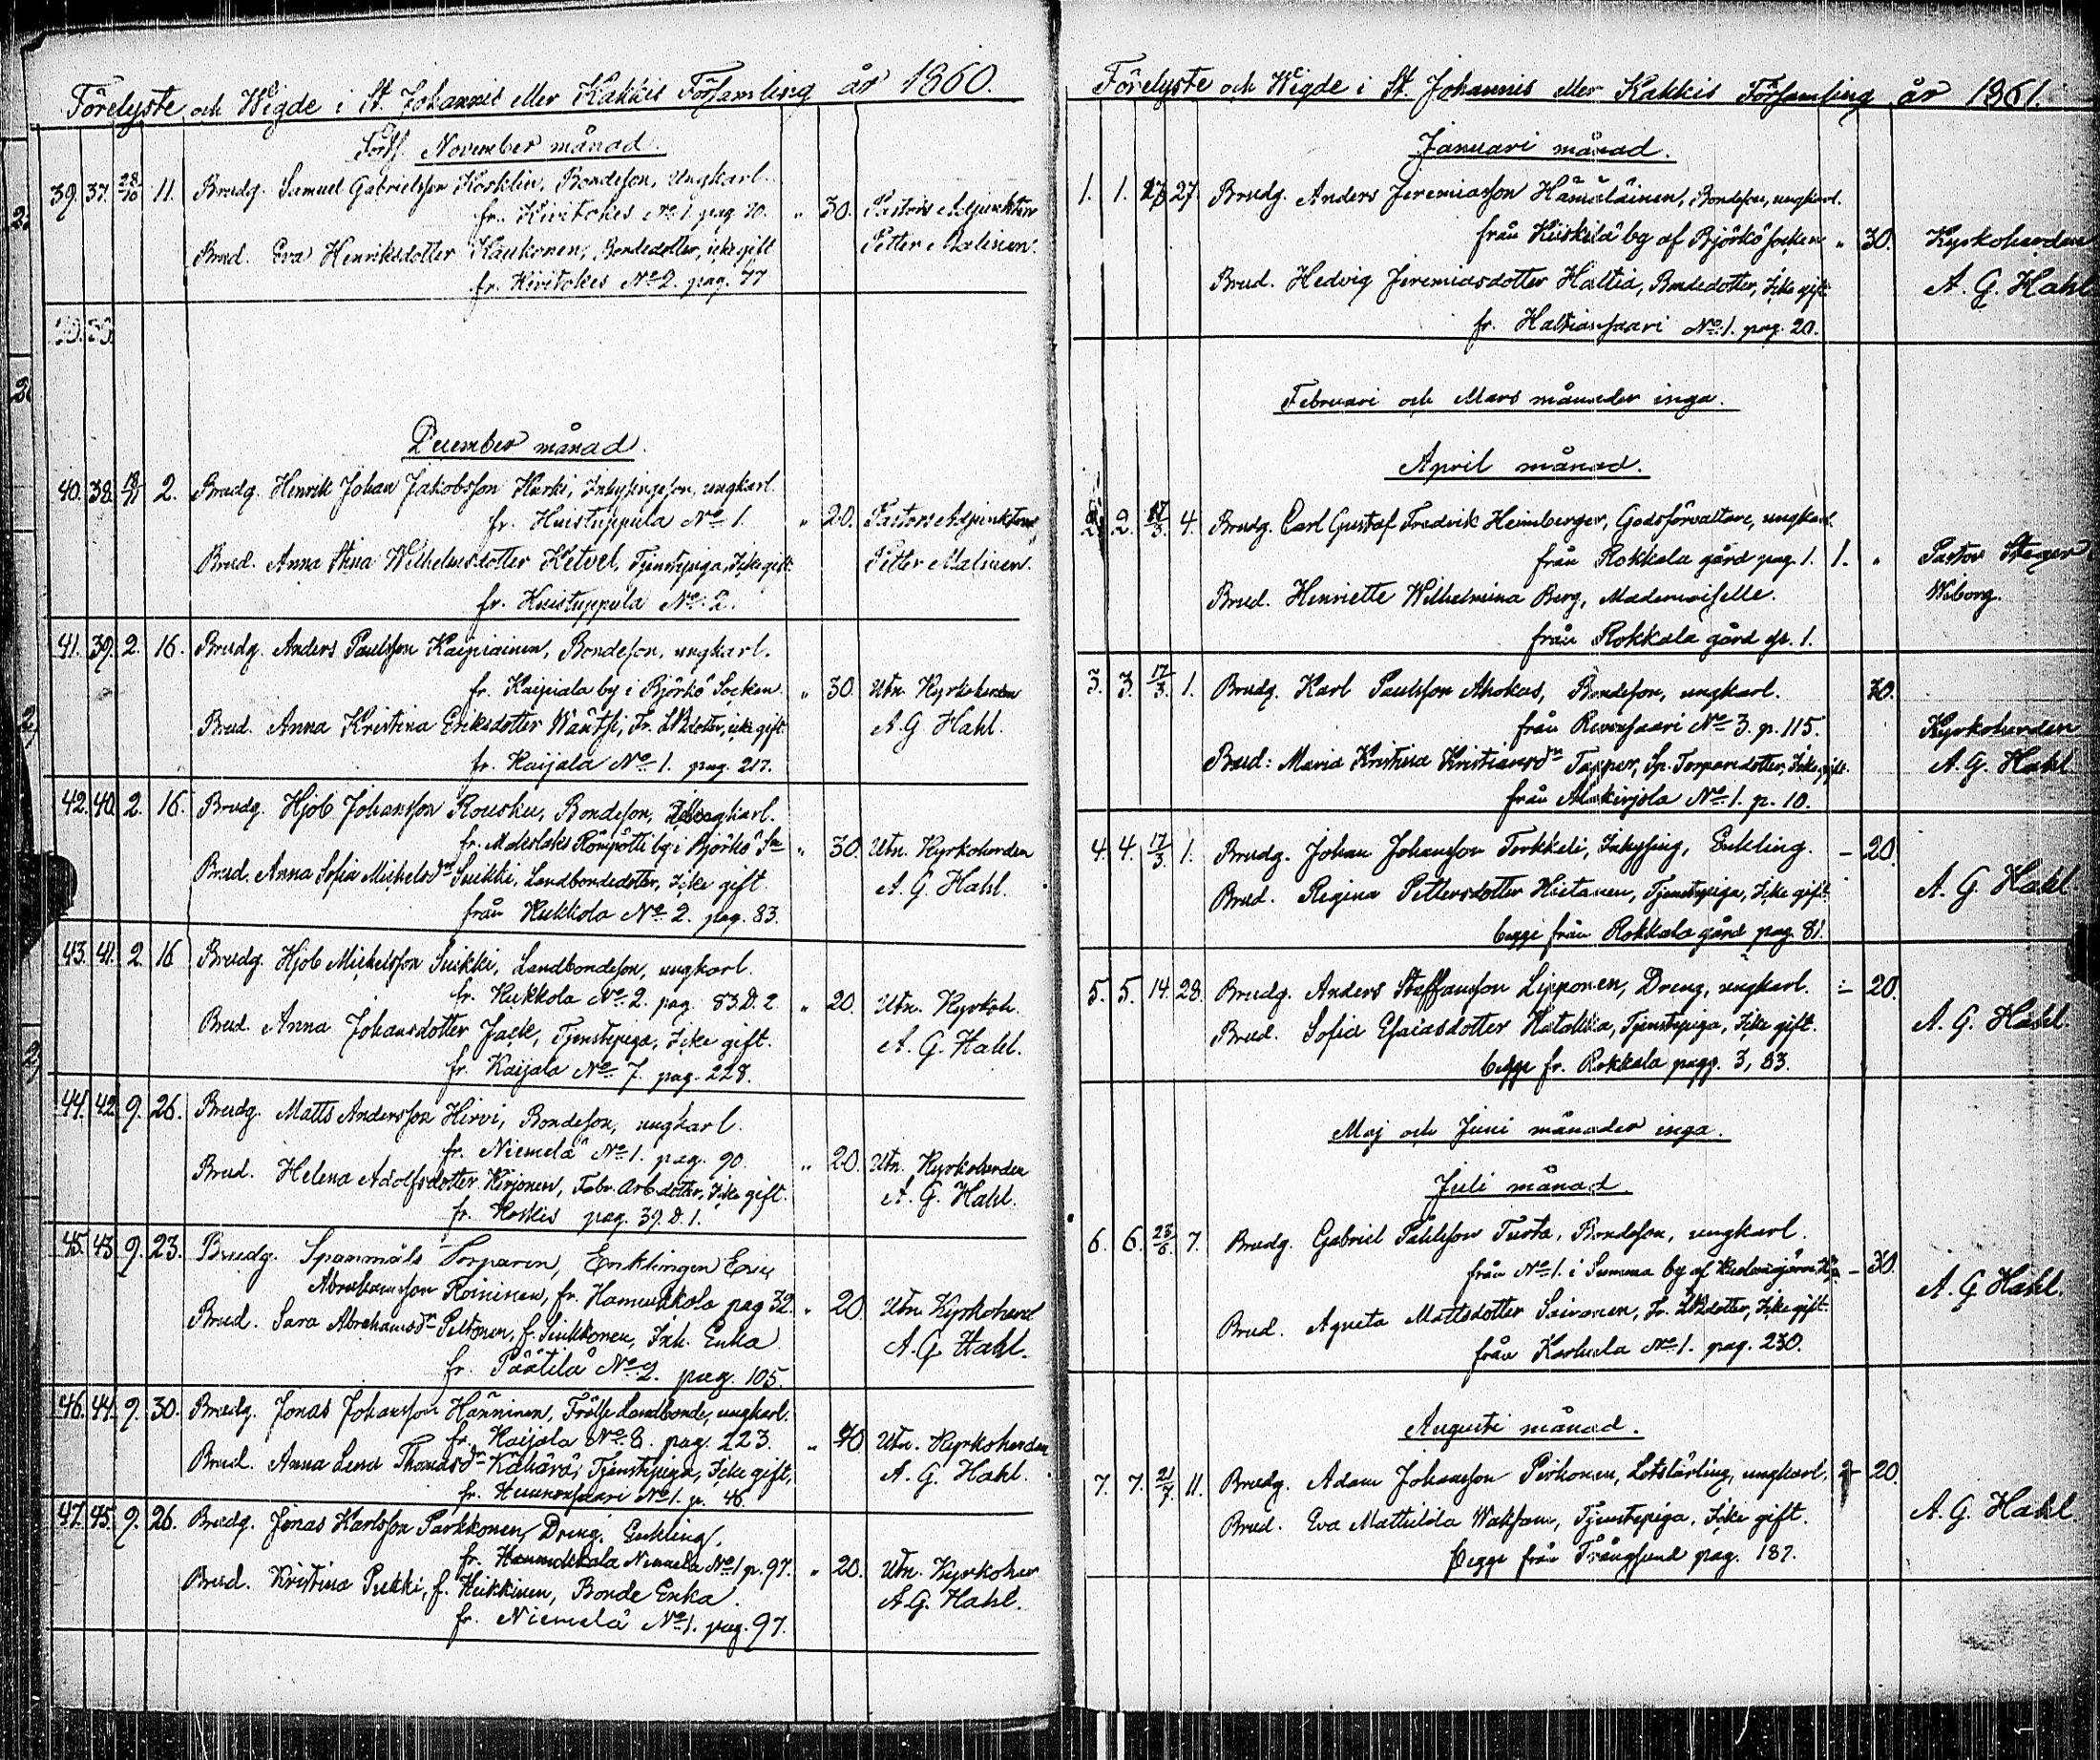 Förelyste och Wigde i St. Johannis eller Kakkis Församling år 1860.
Forts. November månad.
39. 37. 28/10 11. Brudg. Samuel Gabrielsson Korklin, Bondeson, Ungkarl.
fr. Kivitokes No 1. pag. 70. " 30. Pastors Adjunkten
Brud. Eva Henriksdotter Kaukonen, Bondedotter, icke gift Petter Malinen.
fr. Kivitokes No 2. pag. 77
December månad.
40. 38. 18/11 2. Brudg. Henrik Johan Jakobsson Kurki, Inhysingeson, ungkarl.
fr. Huistuppula No 1. " 20. Pastors Adjunkten
Brud. Anna Stina Wilhelmsdotter Ketvel, Tjenstepiga, Icke gift. Petter Malinen.
fr. Huistuppula No 2.
41. 39. 2. 16. Brudg. Anders Paulsson Kaipiainen, Bondeson, ungkarl.
fr. Kaipiala by i Björkö Socken. " 30. Utn. Kyrkoherden
Brud. Anna Kristina Eriksdotter Wäntsi, Fr. LBdotter, icke gift. A. G. Hahl.
fr. Kaijala No 1. pag. 217.
42. 40. 2. 16. Brudg. Hjob Johansson Rousku, Bondeson, ungkarl.
fr. Makslaks Römpötti by i Björkö Sn " 30. Utn. Kyrkoherden
Brud. Anna Sofia Michelsdr Suikki, Landbondedotter, Icke gift. A. G. Hahl.
från Kukkola No 2. pag. 83.
43. 41. 2 16 Brudg. Hjob Michelsson Suikki, Landbondeson, ungkarl.
fr. Kukkola No 2. pag. 83. D. 2. " 20. Utn. Kyrkoh.
Brud. Anna Johansdotter Jack, Tjenstepiga, Icke gift. A. G. Hahl.
fr. Kaijala No 7. pag. 228.
44. 42. 9. 26. Brudg. Matts Andersson Hirvi, Bondeson, ungkarl.
fr. Niemelä No 1. pag. 90. " 20. Utn. Kyrkoherden
Brud. Helena Adolfsdotter Kirjonen, Fabr. Arb dotter, Icke gift. A. G. Hahl.
fr. Koskis pag. 39. D. 1.
45. 43. 9. 23. Brudg. Spannmåls Torparen, Enklingen Eric
Abrahamsson Roininen, fr. Hamukkola pag 32. " 20 Utn. Kyrkoherd
Brud. Sara Abrahamsdr Peltonen, f. Sinkkonen, Inh. Enka A. G. Hahl.
fr. Päätilä No 2. pag. 105.
46. 44. 9. 30. Brudg. Jonas Johansson Hänninen, Frälse Landbonde, ungkarl.
fr. Kaijala No 8. pag. 223. " 40 Utn. Kyrkoherden
Brud. Anna Lena Thomasdr Kähärä, Tjenstepiga, Icke gift, A. G. Hahl.
fr. No 1. p. 46.
47. 45. 9. 26. Brudg. Jonas Karlsson Parkkonen, Dreng, Enkling,
fr. Niemelä No 1 p. 97. " 20. Utn. Kyrkoher
Brud. Kristina Pukki, f. Heikkinen, Bonde Enka. A. G. Hahl.
fr. Niemelä No 1. pag. 97.
Förelyste och Wigde i St. Johannis eller Kakkis Församling år 1861.
Januari månad.
1. 1. 27. Brudg. Anders Jeremiasson Hämäläinen, Bondeson, ungkarl.
från Kiiskilä by af Björkö socken " 30. Kyrkoherden
Brud. Hedvig Jeremiasdotter Haltia, Bondedotter, Icke gift A. G. Hahl
fr. Haltiansaari No 1. pag. 20.
Februari och Mars månader inga.
April månad.
2. 2. 17/3. 4. Brudg. Carl Gustaf Fredrik Heimberger, Godsförvaltare, ungkarl.
från Rokkala gård pag. 1. 1. " Pastor Steger
Brud. Henriette Wilhelmina Berg, Mademoiselle. Wiborg.
från Rokkala gård p. 1.
3. 3. 17/3. 1. Brudg. Karl Paulsson Ahokas, Bondeson, ungkarl. 30.
från Revonsaari No 3. p. 115. Kyrkoherden
Brud: Maria Kristina Kristiansdr Tapper, Sp. Torparedotter, Icke gift. A. G. Hahl
från Alakirjola No 1. p. 10.
4. 4. 17/3. 1. Brudg. Johan Johansson Torkkeli, Inhysing, Enkling. – 20.
Brud. Regina Pettersdotter Hietanen, Tjenstepiga, Icke gift. A. G. Hahl
begge från Rokkala gård pag. 81.
5. 5. 14. 28. Brudg. Anders Staffansson Lipponen, Dreng, ungkarl. – 20.
Brud. Sofia Esaiasdotter Hatakka, Tjenstepiga, Icke gift. A. G. Hahl.
begge fr. Rokkala pagg. 3, 83.
Maj och Juni månader inga.
Juli månad.
6. 6. 23/6. 7. Brudg. Gabriel Påhlsson Tusta, Bondeson, ungkarl.
från No 1. i Summa by af – 30. A. G. Hahl.
Brud. Agneta Mattsdotter Saivonen, Fr. LBdotter, Icke gift.
från Karhula No 1. pag. 230.
Augusti månad.
7. 7. 21/7. 11. Brudg. Adam Johansson Pirhonen, Lotslärling, ungkarl. – 20.
Brud. Eva Mathilda Waksam, Tjenstepiga, Icke gift. A. G. Hahl.
begge från Trångsund pag. 187.